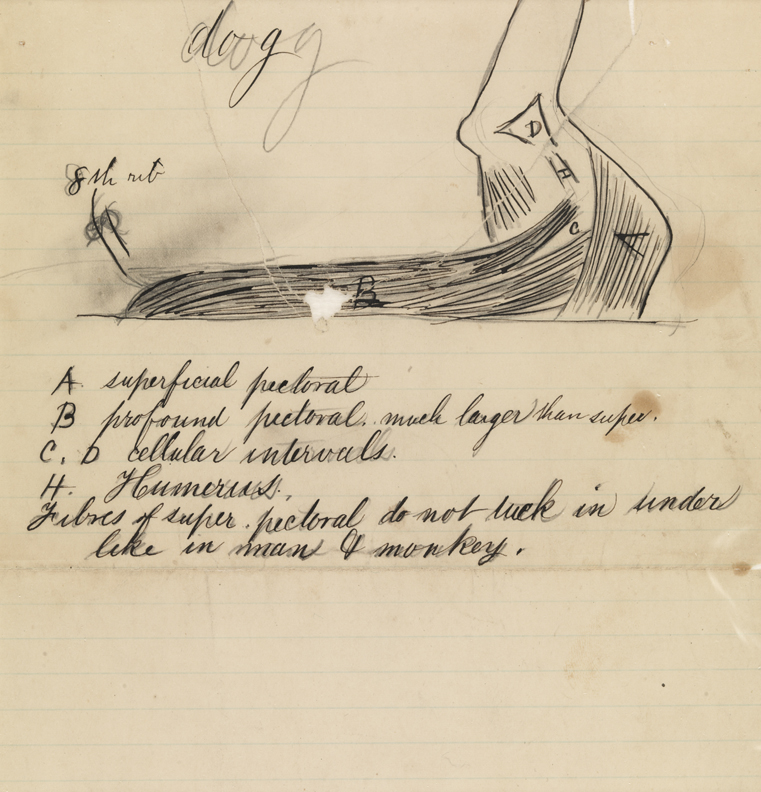 dogg
8th rib
D
H
C
A
B
A superficial pectoral
B profound pectoral. much larger than super.
C, D cellular intervals.
H. Humerus.
Fibres of super. pectoral do not tuck in under
like in man & monkey.